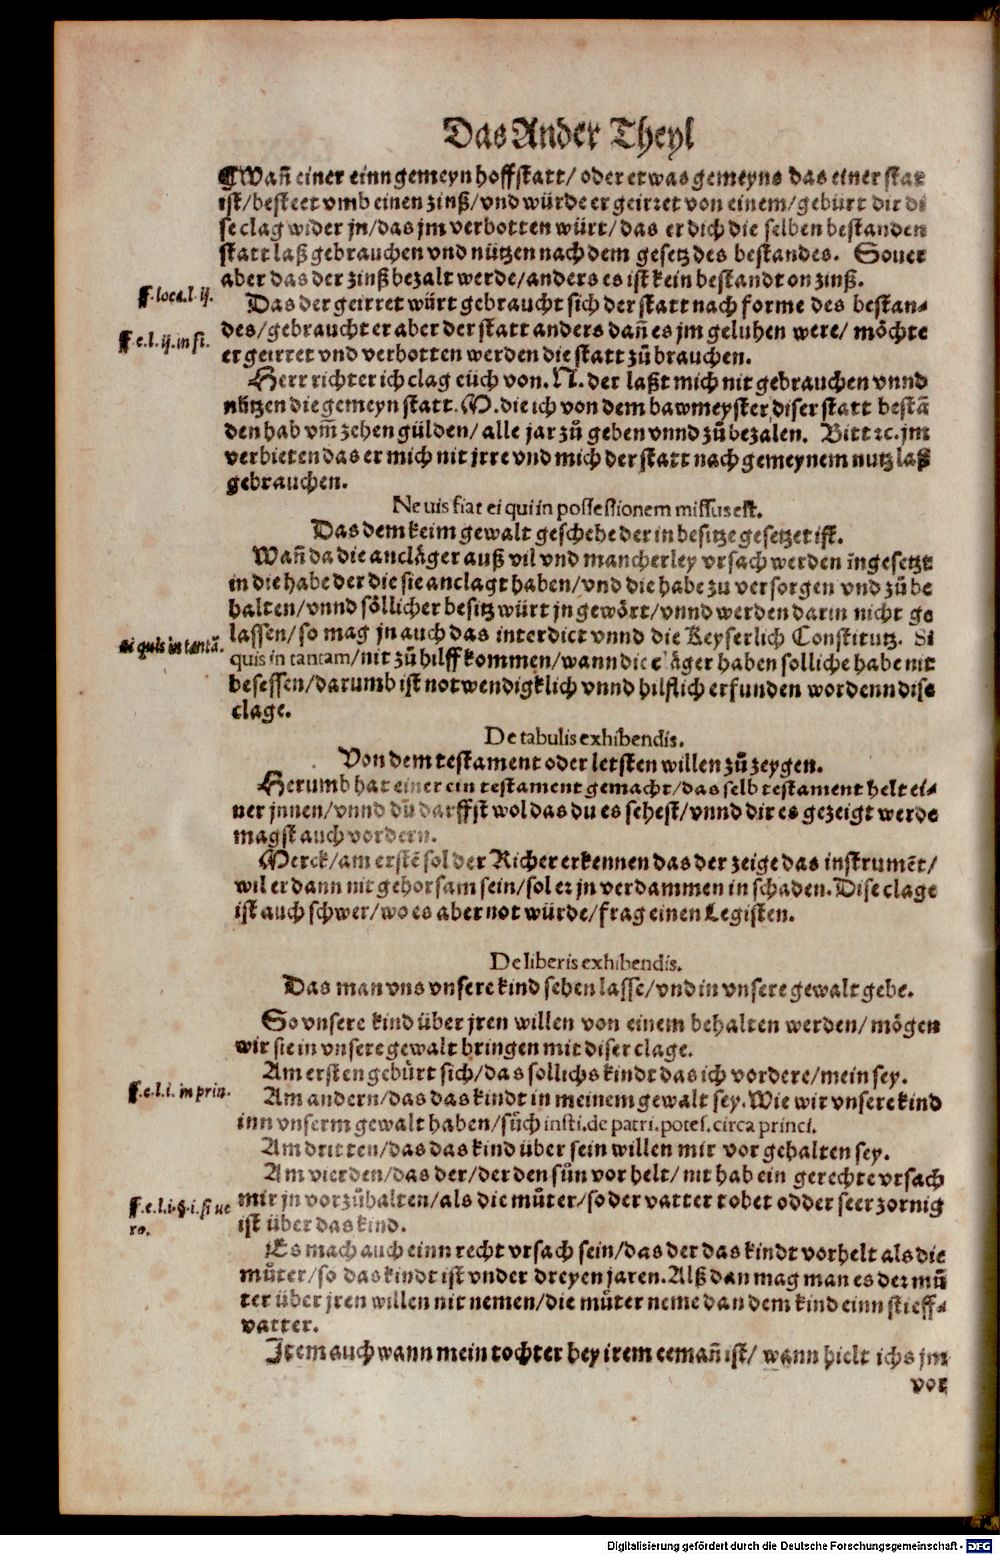 Das Ander Theyl
¶Wañ einer einn gemeyn hoffstatt/ oder etwas gemeyns das einer stat
ist/besteet vmb einen zinß/vnd würde er geirret von einem/gebürt dir di
se clag wider jn/das jm verbotten würt/ das er dich die selben bestanden
statt laß gebrauchen vnd nützen nach dem gesetz des bestandes. Souer
aber das der zinß bezalt werde/anders es ist kein bestandt on zinß.
ff.loca.l.ij.
Das der geirret würt gebraucht sich der statt nach forme des bestan-
des/gebraucht er aber der statt anders dañ es jm geluhen were/ möchte
ff.e.l.ij.in fi.
er geirret vnd verbotten werden die statt zů brauchen.
Herr richter ich clag eüch von. N. der laßt mich nit gebrauchen vnnd
nützen die gemeyn statt. M. die ich von dem bawmeyster diser statt bestā
den hab vm̃ zehen gülden/ alle jar zů geben vnnd zů bezalen. Bitt ꝛc. jm
verbieten das er mich nit jrre vnd mich der statt nach gemeynem nutz laß
gebrauchen.
Ne uis fiat ei qui in possessionem missus est.
Das dem keim gewalt geschehe der in besitze gesetzet ist.
Wañ da die ancläger auß vil vnd mancherley vrsach werden ingesetzt
in die habe der die sie anclagt haben/vnd die habe zu versorgen vnd zů be
halten/vnnd söllicher besitz würt jn gewört/vnnd werden darin nicht ge
lassen/so mag jn auch das interdict vnnd die Keyserlich Constitutz. Si
si quis in tantā.
quis in tantam/nit zů hilff kommen/wann die cläger haben solliche habe nit
besessen/darumb ist notwendigklich vnnd hilflich erfunden wordenn dise
clage.
De tabulis exhibendis.
Von dem testament oder letsten willen zů zeygen.
Herumb hat einer ein testament gemacht/das selb testament helt ei-
ner jnnen/vnnd dů darffst wol das du es sehest/vnnd dir es gezeigt werde
magst auch vordern.
Merck/am erstē sol der Richer erkennen das der zeige das instrumēt/
wil er dann nit gehorsam sein/sol er jn verdammen in schaden. Dise clage
ist auch schwer/wo es aber not würde/frag einen Legisten.
De liberis exhibendis.
Das man vns vnsere kind sehen lasse/vnd in vnsere gewalt gebe.
So vnsere kind über jren willen von einem behalten werden/mögen
wir sie in vnsere gewalt bringen mit diser clage.
Am ersten gebürt sich/das sollichs kindt das ich vordere/mein sey.
ff.e.l.i. in prin.
Am andern/das das kindt in meinem gewalt sey. Wie wir vnsere kind
inn vnserm gewalt haben/sůch insti. de patri. potes. circa princi.
Am dritten/das das kind über sein willen mir vor gehalten sey.
Am vierden/das der/der den sůn vor helt/ nit hab ein gerechte vrsach
mir jn vorzůhalten/als die můter/so der vatter tobet odder seer zornig
ff.e.l.i.§.i. si ue
ro.
ist über das kind.
Es mach auch einn recht vrsach sein/das der das kindt vorhelt als die
můter/so das kindt ist vnder dreyen jaren. Alß dan mag man es der mů
ter über jren willen nit nemen/die můter neme dan dem kind einn stieff-
vatter.
Item auch wann mein tochter bey irem eemañ ist/ wann hielt ichs jm
vor
Digitalisierung gefördert durch die Deutsche Forschungsgemeinschaft - DFG